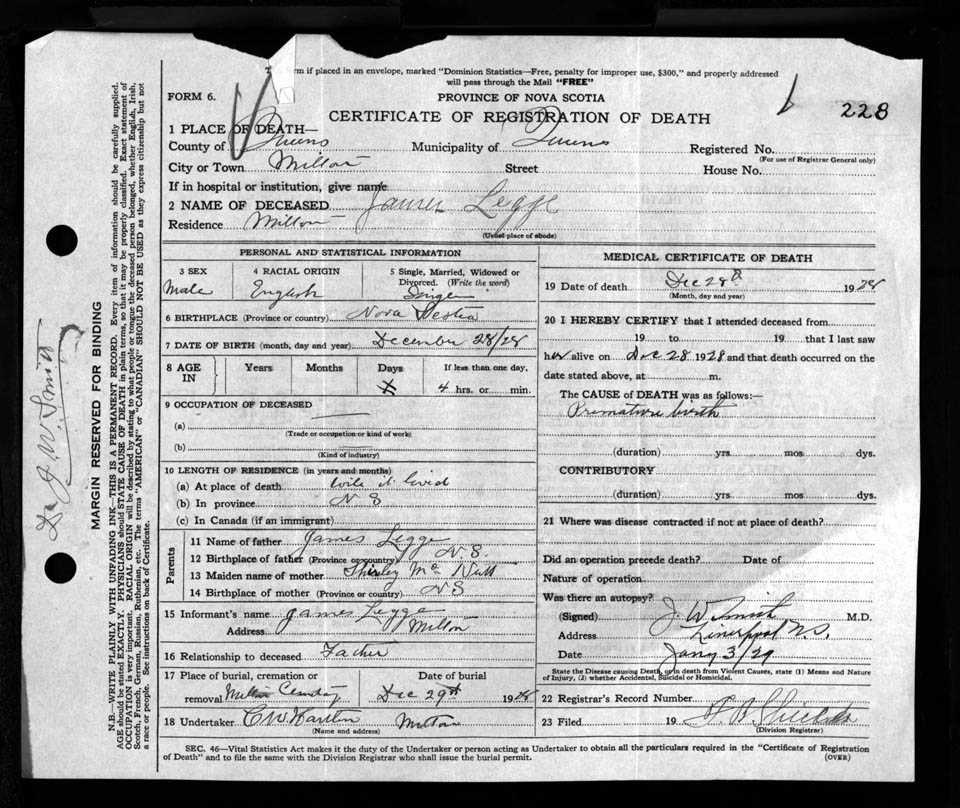 form if placed in an envelope, marked "Dominion Statistics—Free, penalty for improper use, $300," and properly addressed
will pass through the Mail "FREE"
FORM 6.
PROVINCE OF NOVA SCOTIA
228
CERTIFICATE OF REGISTRATION OF DEATH
1 PLACE OF DEATH—
County of Queens Municipality of Queens Registered No.
(For use of Registrar General only)
City or Town Milton Street House No.
If in hospital or institution, give name
2 NAME OF DECEASED James Legge
Residence Milton
(Usual place of abode)
PERSONAL AND STATISTICAL INFORMATION
3 SEX 4 RACIAL ORIGIN 5 Single, Married, Widowed or
Divorced. (Write the word)
Male English Single
6 BIRTHPLACE (Province or country) Nova Scotia
7 DATE OF BIRTH (month, day and year) December 28/28
8 AGE IN Years Months Days If less than one day,
4 hrs. or min.
9 OCCUPATION OF DECEASED
(a)
(Trade or occupation or kind of work)
(b)
(Kind of industry)
10 LENGTH OF RESIDENCE (in years and months)
(a) At place of death while it lived
(b) In province N S
(c) In Canada (if an immigrant)
Parents
11 Name of father James Legge
12 Birthplace of father (Province or country) N.S.
13 Maiden name of mother Shirley
14 Birthplace of mother (Province or country) N S
15 Informant's name James Legge
Address Milton
16 Relationship to deceased Father
17 Place of burial, cremation or
removal Milton Date of burial
Dec 29th 1928
18 Undertaker Milton
(Name and address)
MEDICAL CERTIFICATE OF DEATH
19 Date of death Dec 28th 1928
(Month, day and year)
20 I HEREBY CERTIFY that I attended deceased from
19 to 19 that I last saw
h alive on Dec 28 1928 and that death occurred on the
date stated above, at m.
The CAUSE of DEATH was as follows:—
Premature birth
(duration) yrs. mos. dys.
CONTRIBUTORY
(duration) yrs. mos. dys.
21 Where was disease contracted if not at place of death?
Did an operation precede death? Date of
Nature of operation
Was there an autopsy?
(Signed) J. W. Smith M.D.
Address Liverpool N.S.
Date Jany 3/29
State the Disease causing Death, or in death from Violent Causes, state (1) Means and
Nature of Injury, (2) whether Accidental, Suicidal or Homicidal.
22 Registrar's Record Number
23 Filed 19 Shields
(Division Registrar)
SEC. 46—Vital Statistics Act makes it the duty of the Undertaker or person acting as Undertaker to obtain all the particulars required in the "Certificate of Registration
of Death" and to file the same with the Division Registrar who shall issue the burial permit. (OVER)
Dr J. W. Smith
MARGIN RESERVED FOR BINDING
N.B.—WRITE PLAINLY WITH UNFADING INK—THIS IS A PERMANENT RECORD. Every item of information should be carefully supplied.
AGE should be stated EXACTLY. PHYSICIANS should STATE CAUSE OF DEATH in plain terms, so that it may be properly classified. Exact statement of
OCCUPATION is very important. RACIAL ORIGIN will be described by stating to what people or tongue the deceased person belonged, whether English, Irish,
Scotch, French, German, Russian, Ruthenian, etc. The terms "AMERICAN" or "CANADIAN" SHOULD NOT BE USED as they express citizenship but not
a race or people. See instructions on back of Certificate.